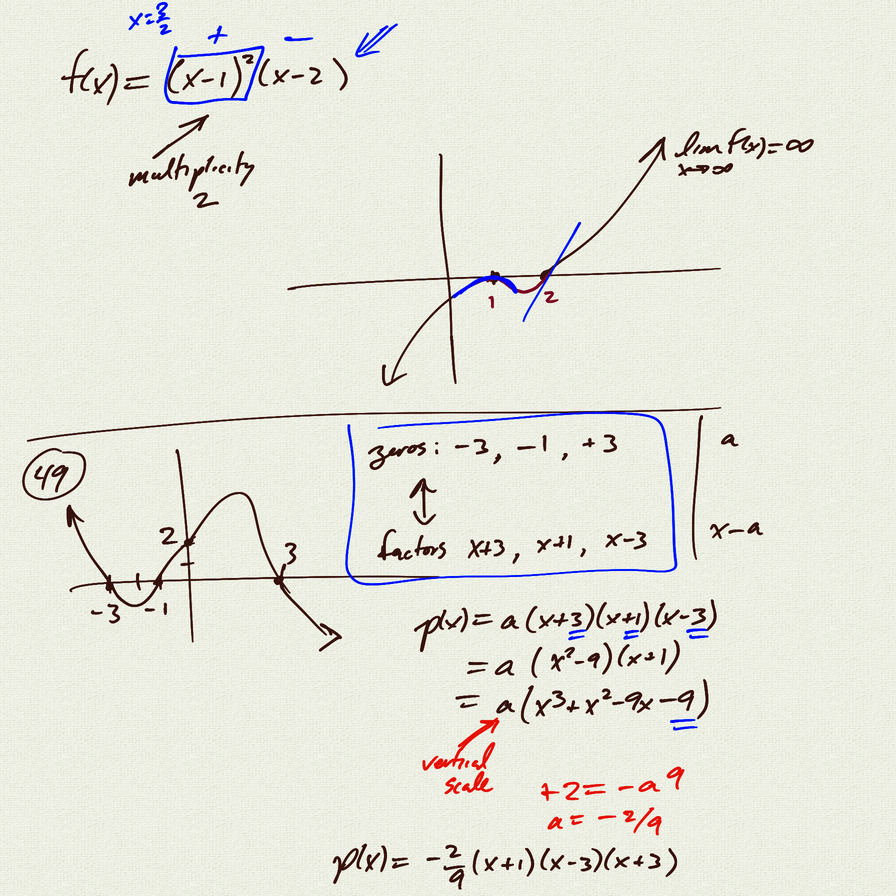 x=3/2
+ −
f(x) = (x-1)²(x-2)
multiplicity
2
lim f(x) = ∞
x→∞
1 2
49
zeros: -3, -1, +3
a
factors x+3, x+1, x-3
x-a
2
3
-3 -1
p(x) = a(x+3)(x+1)(x-3)
= a (x²-9)(x+1)
= a(x³+x²-9x-9)
vertical
scale
+2 = -a9
a = -2/9
p(x) = -2/9 (x+1)(x-3)(x+3)